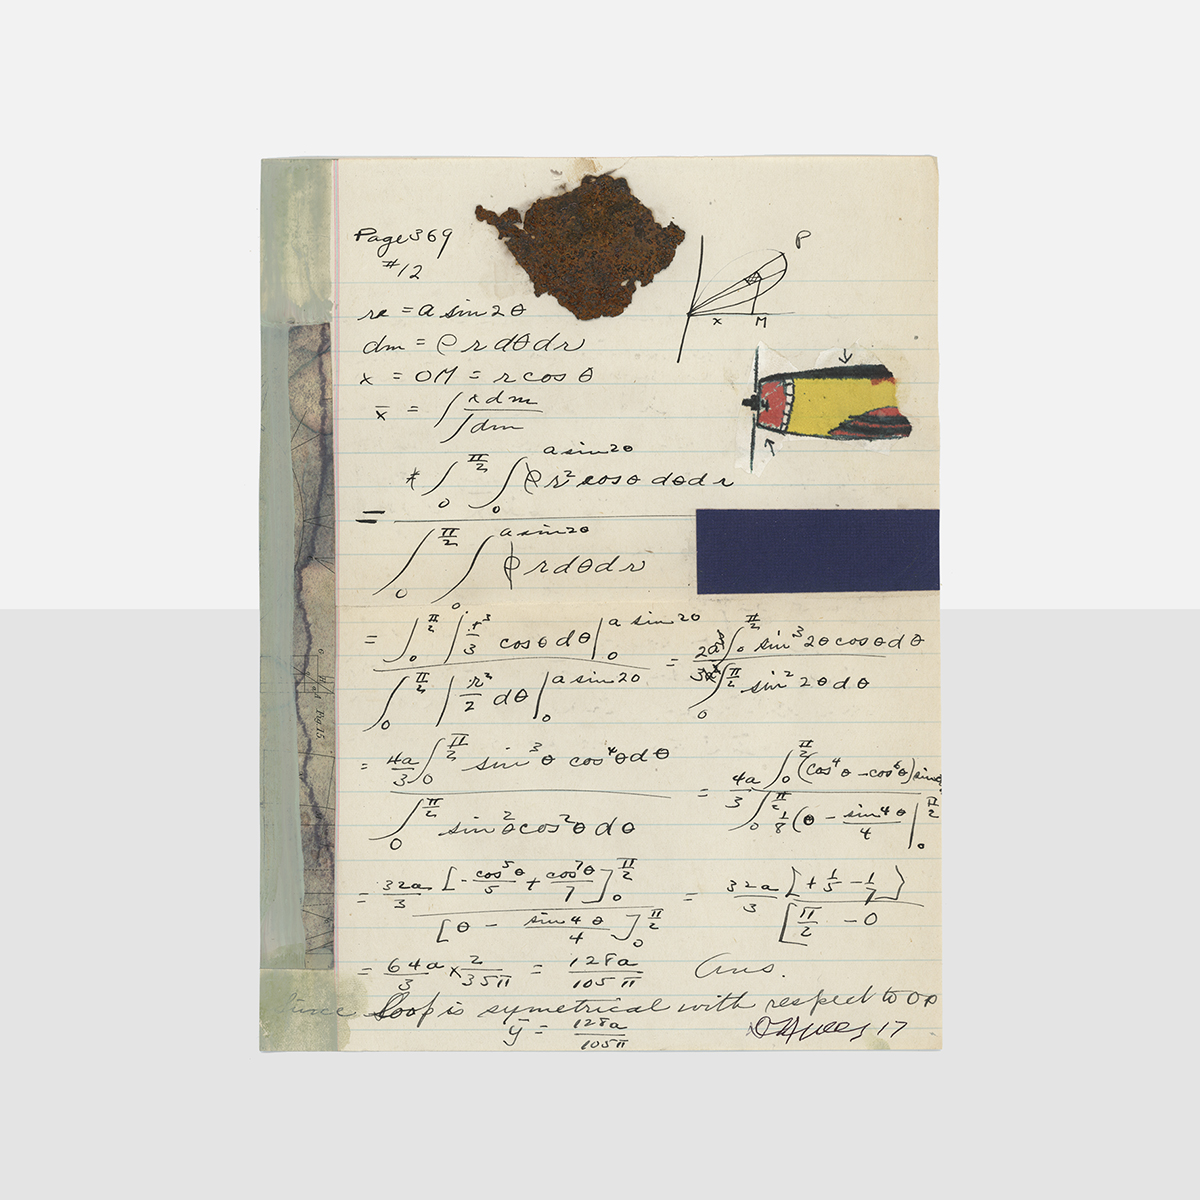 Page 369
#12
P
x M
r = a sin 2θ
dm = ρ r dθ dr
x = OM = r cos θ
x̄ = ∫ x dm / ∫ dm
= ∫₀^(π/2) ∫₀^(a sin 2θ) ρ r² cos θ dθ dr / ∫₀^(π/2) ∫₀^(a sin 2θ) ρ r dθ dr
= ∫₀^(π/2) | r³/3 cos θ dθ |₀^(a sin 2θ) / ∫₀^(π/2) | r²/2 dθ |₀^(a sin 2θ) = 2a/3 ∫₀^(π/2) sin³ 2θ cos θ dθ / ∫₀^(π/2) sin² 2θ dθ
Fig. 15
= 4a/3 ∫₀^(π/2) sin³ θ cos⁴ θ dθ / ∫₀^(π/2) sin² θ cos² θ dθ = 4a/3 ∫₀^(π/2) (cos⁴ θ - cos⁶ θ) sin / ∫₀^(π/2) 1/8 (θ - sin 4θ/4 |₀^(π/2)
= 32a/3 [- cos⁵ θ/5 + cos⁷ θ/7]₀^(π/2) / [θ - sin 4θ/4]₀^(π/2) = 32a/3 [+ 1/5 - 1/7] / [π/2 - 0
= 64a/3 × 2/35π = 128a/105π Ans.
Since loop is symetrical with respect to OP
ȳ = 128a/105π
17